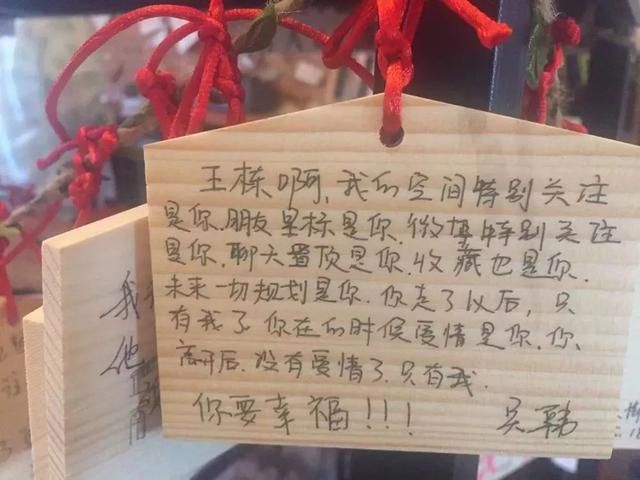 王栋啊,我的空间特别关注
是你.朋友星标是你.微博特别关注
是你.聊天置顶是你.收藏也是你.
未来一切规划是你.你走了以后,只
有我了.你在的时候爱情是你.你
离开后.没有爱情了.只有我.
你要幸福!!! 吴韩
我
他